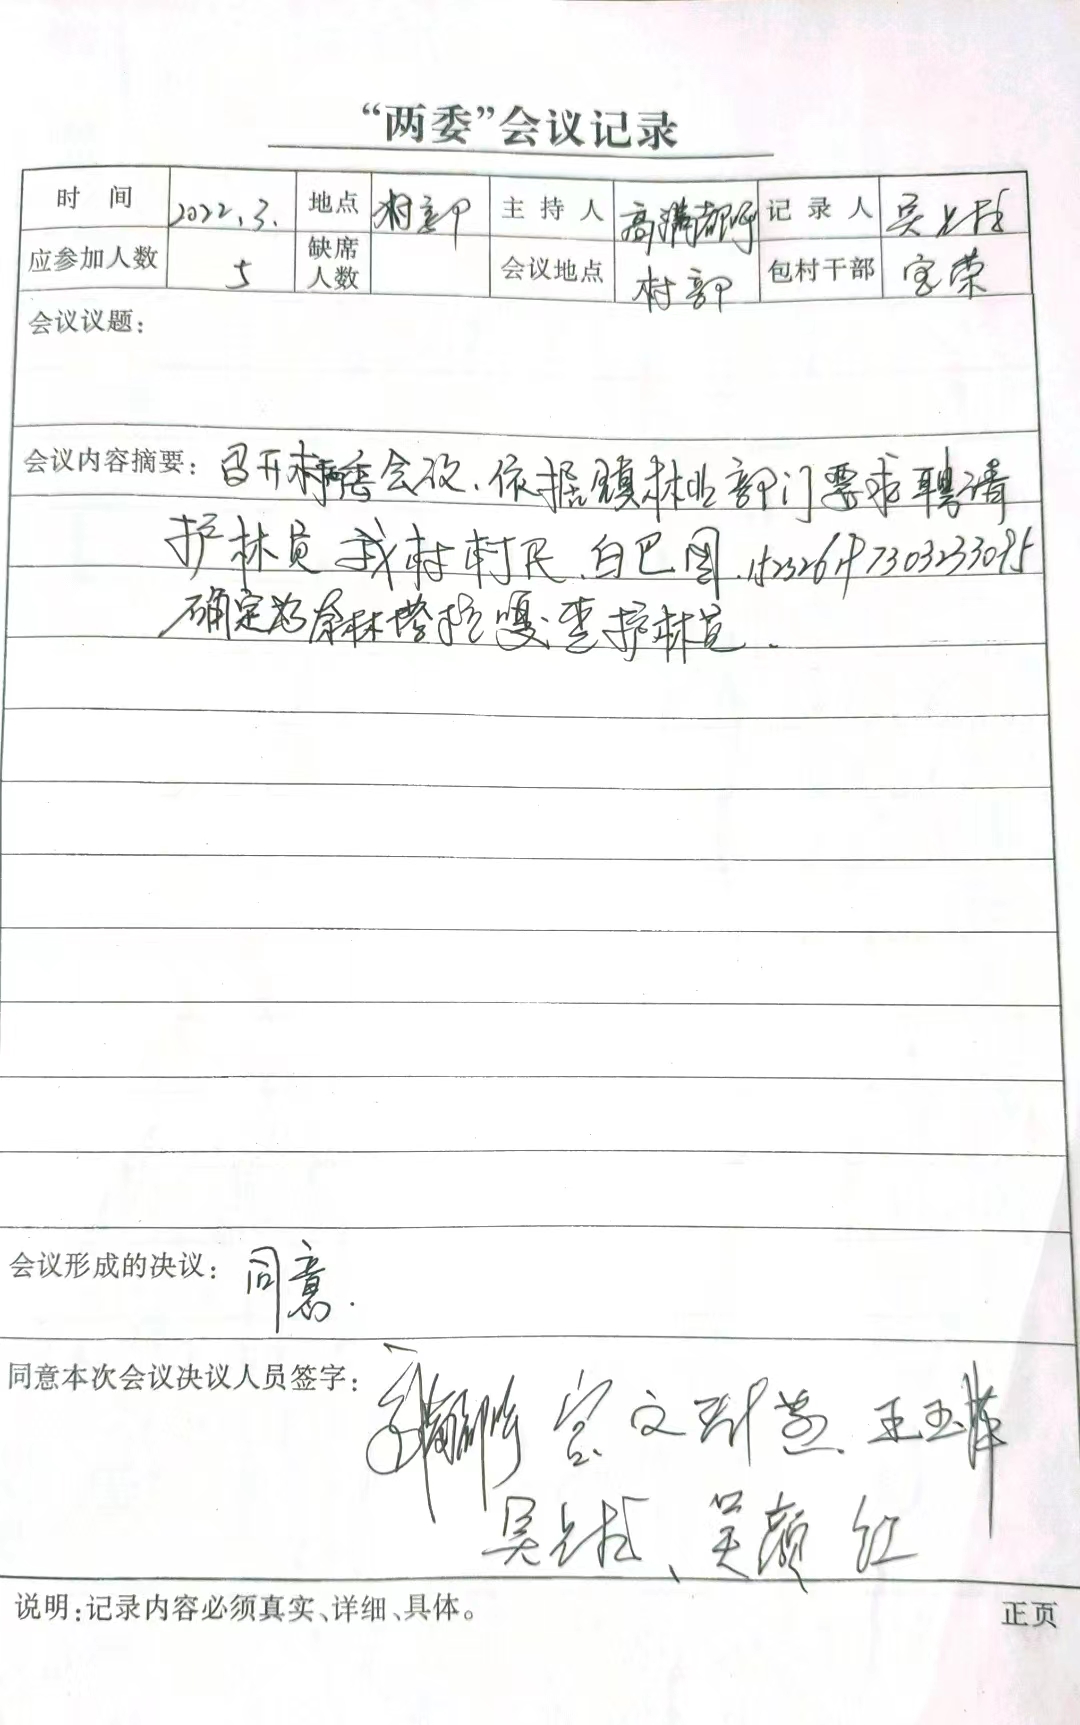 “两委”会议记录
时 间 2022.3. 地点 村部 主 持 人 高满都呼 记 录 人 吴
应参加人数 5 缺席人数 会议地点 村部 包村干部 宝荣
会议议题：
会议内容摘要：召开村两委会议、依据镇林业部门要求聘请
护林员 我村村民、白巴图
确定为 林塔拉嘎查护林员.
会议形成的决议：同意.
同意本次会议决议人员签字：
高满都呼 宫文 王玉萍
吴 、吴颜红
说明：记录内容必须真实、详细、具体。
正页